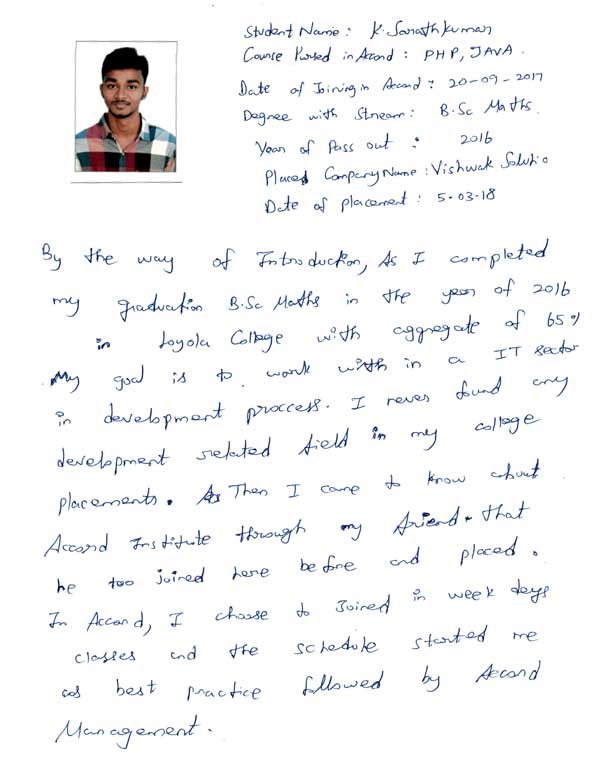 Student Name : K. Sarathkumar
Course Pursed in Accord : PHP, JAVA.
Date of Joining in Accord : 20-09-2017
Degree with Stream : B.Sc Maths.
Year of Pass out : 2016
Placed Company Name : Vishwak Solutio
Date of placement : 5-03-18
By the way of Introduction, As I completed
my graduation B.Sc Maths in the year of 2016
in Loyola College with aggregate of 65%
My goal is to work with in a IT sector
in development proccess. I never found any
development related field in my college
placements. Then I came to know about
Accord Institute through my friend. that
he too joined here before and placed.
In Accord, I choose to Joined in week days
classes and the schedule started me
as best practice followed by Accord
Management.